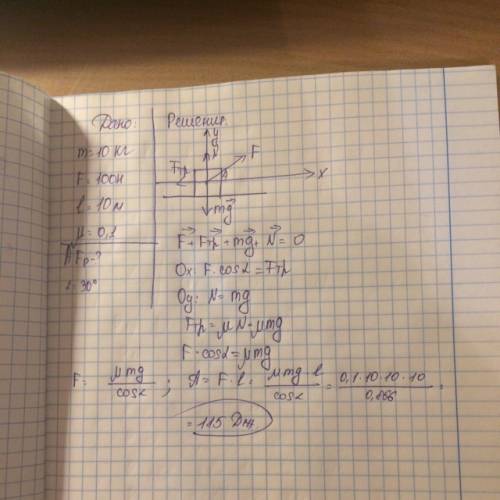 Дано:
m=10 кг
F=100н
l=10м
μ=0,1
A Fр-?
α=30°
Решение:
y
N
Fтр
F
x
mg
F+Fтр+mg+N=0
Ox: F·cosα=Fтр
Oy: N=mg
Fтр=μN=μmg
F·cosα=μmg
F= μmg/cosα ; A=F·l= μmg l/cosα = 0,1·10·10·10/0,866 =
=115 Дж